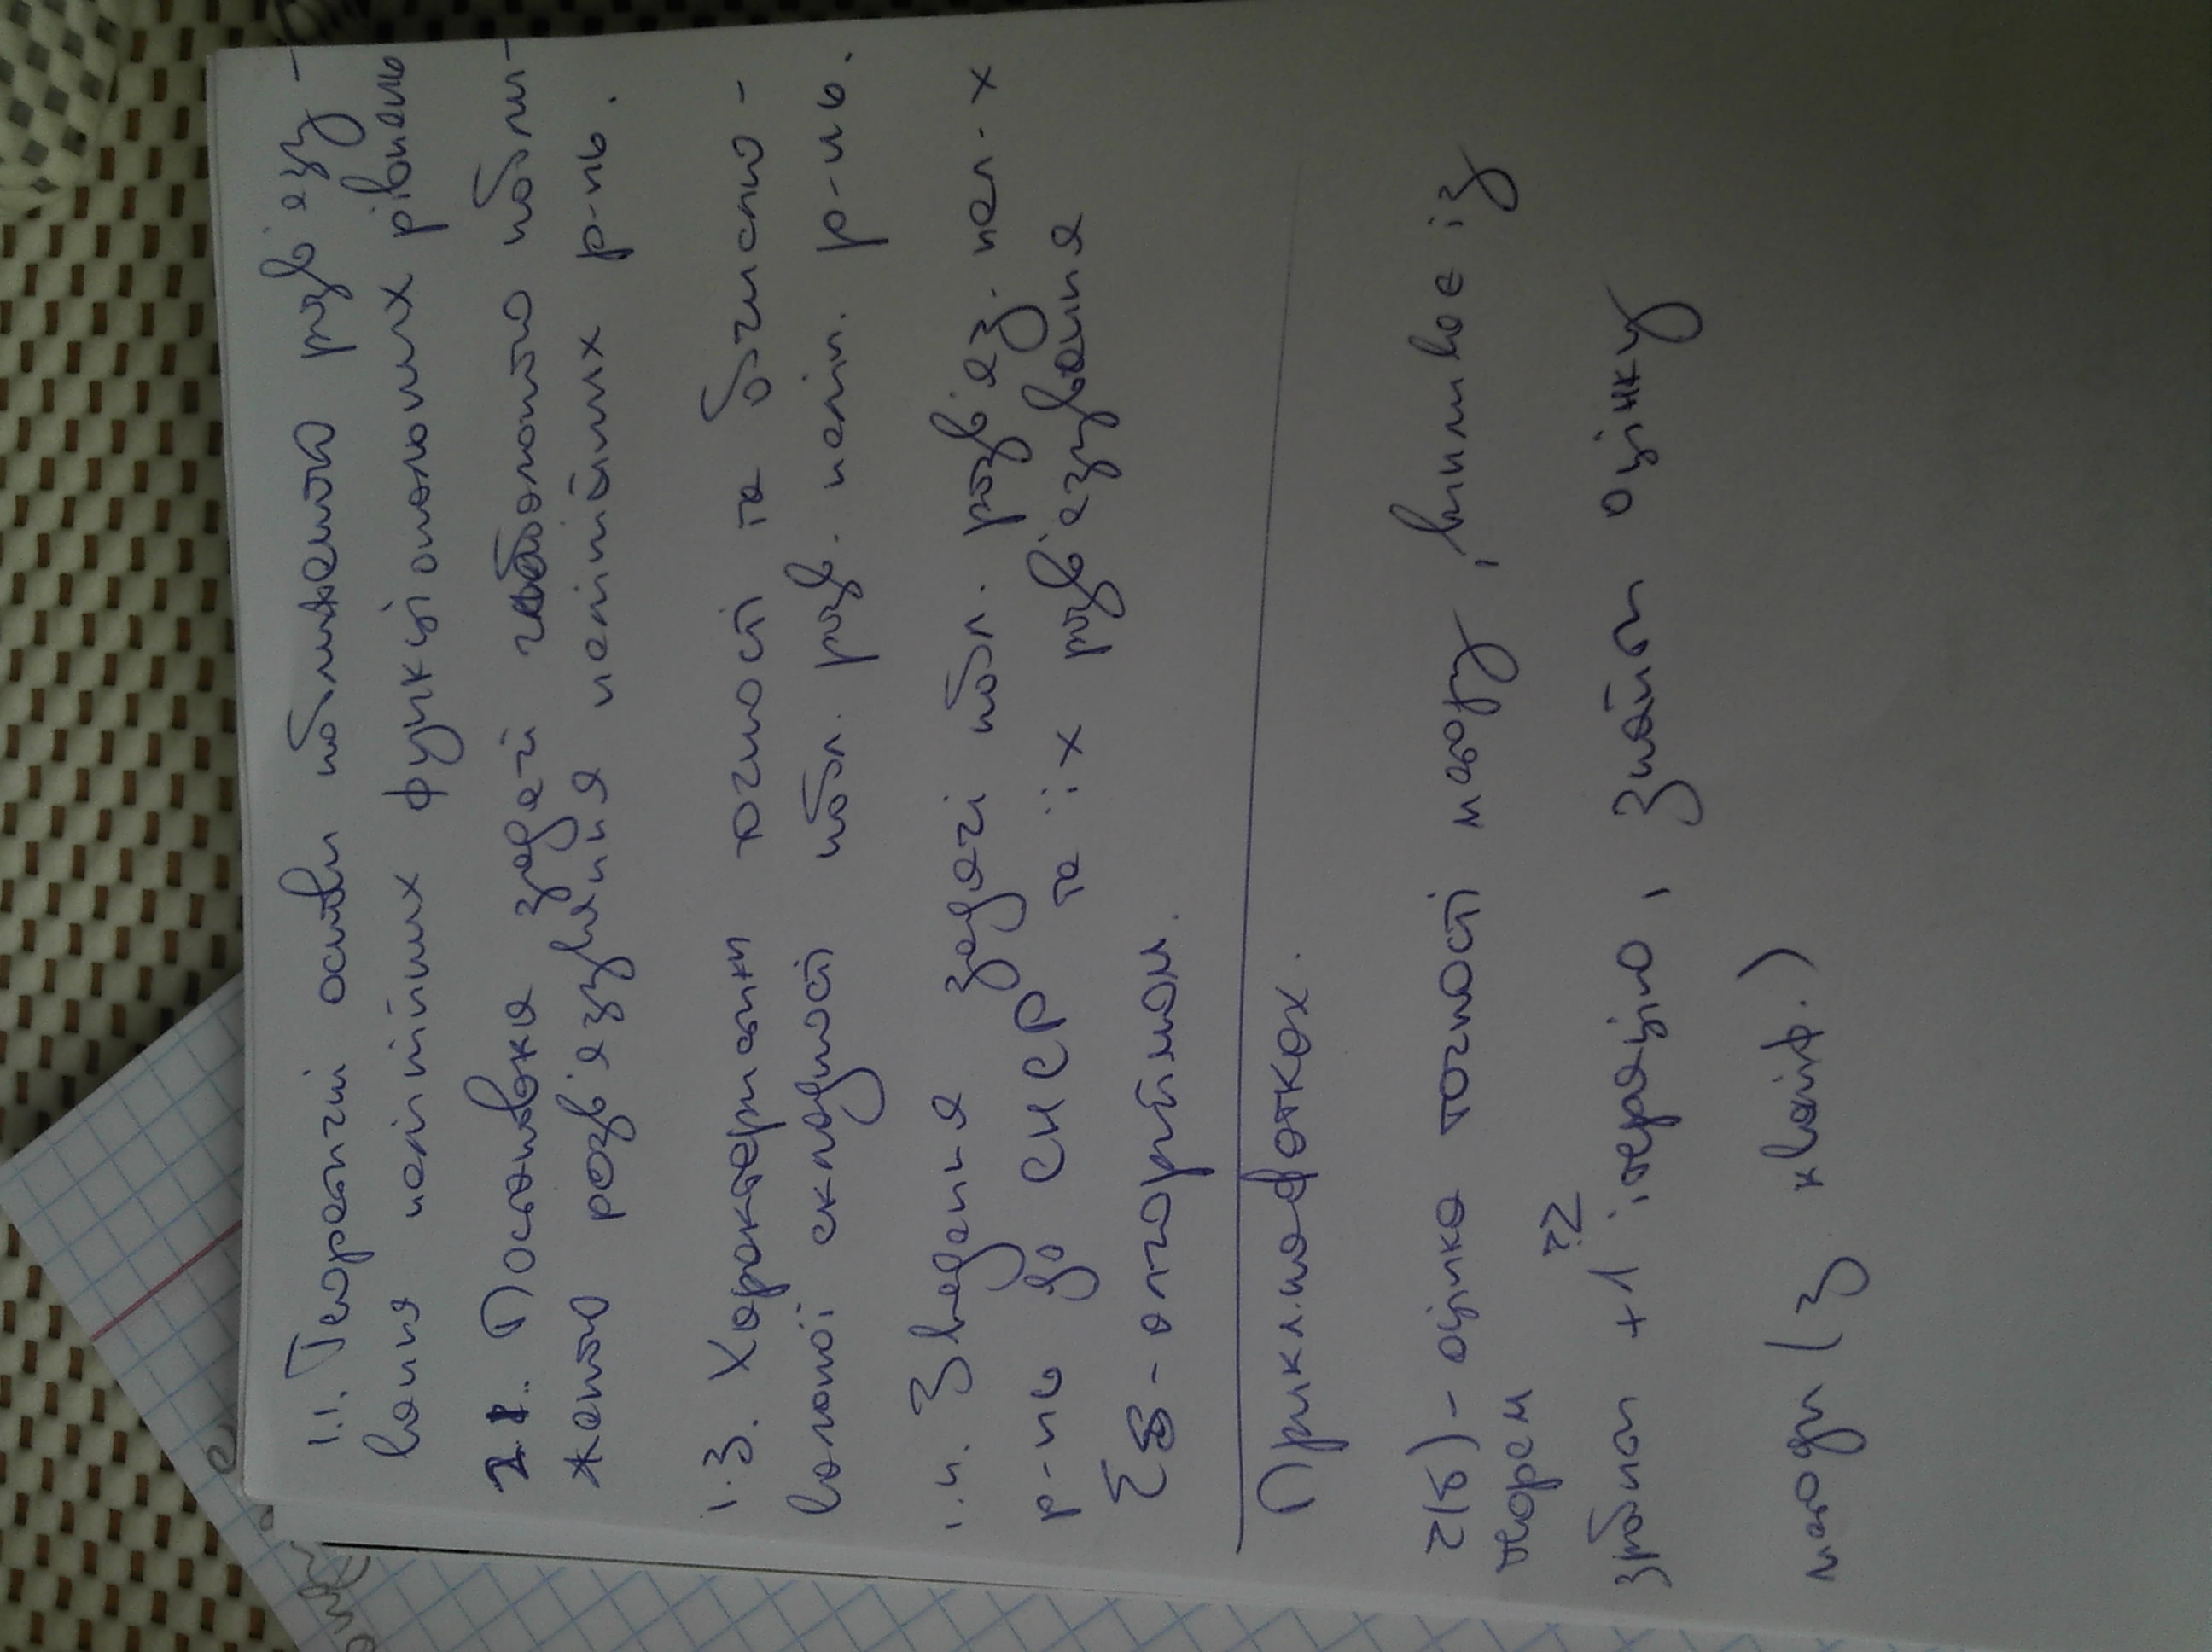 1.1. Теоретичні основи наближеного розв'язу-
вання нелінійних функціональних рівнянь
2.1. Постановка задачі глобального набли-
женого розв'язування нелінійних р-нь.
1.3. Характеристики точності та обчислю-
вальної складності набл. розв. нелін. р-нь.
1.4. Зведення задачі набл. розв'яз. нел-х
р-нь до СНСР та їх розв'язування
-алгоритмом.
Прикл. на фотках.
- оцінка точності методу, випливає із
теорем
??
зробити +1 ітерацію, знайти оцінку
методи (з кваліф.)